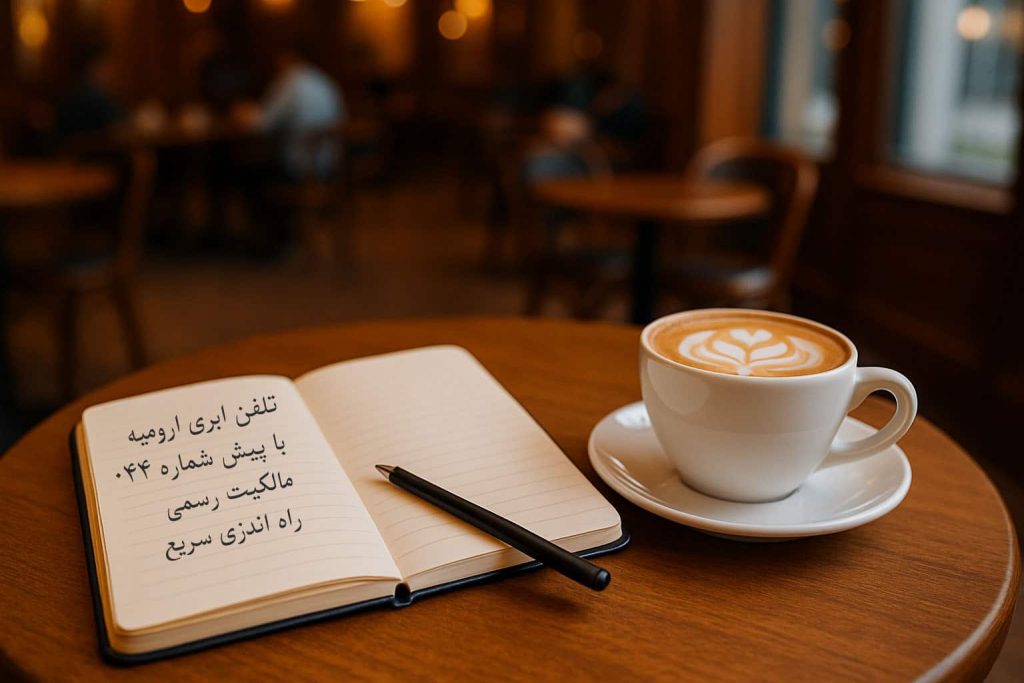 تلفن ابری ارومیه
با پیش شماره ۰۴۴
مالکیت رسمی
راه اندزی سریع